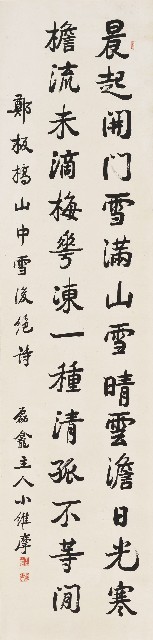 晨起開門雪滿山雪晴雲澹日光寒
檐流未滴梅花凍一種清孤不等閒
鄭板橋山中雪後絕詩
磊龕主人小維摩